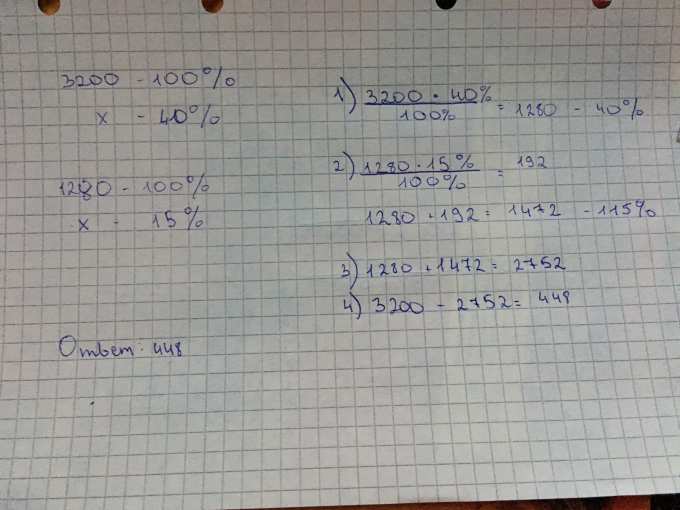 3200 - 100%
x - 40%
1280 - 100%
x - 15%
1) 3200 · 40% / 100% = 1280 - 40%
2) 1280 · 15% / 100% = 192
1280 + 192 = 1472 - 115%
3) 1280 + 1472 = 2752
4) 3200 - 2752 = 448
Ответ: 448